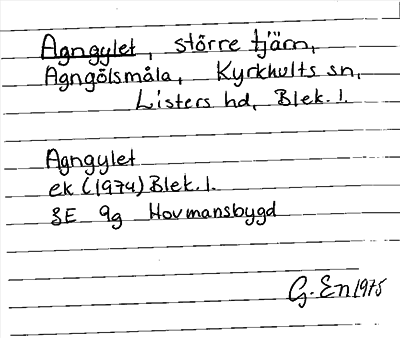 Agngylet, större tjärn,
Agngölsmåla, Kyrkhults sn,
Listers hd, Blek. l.
Agngylet
ek (1974) Blek. l.
3E 9g Hovmansbygd
G. En 1975